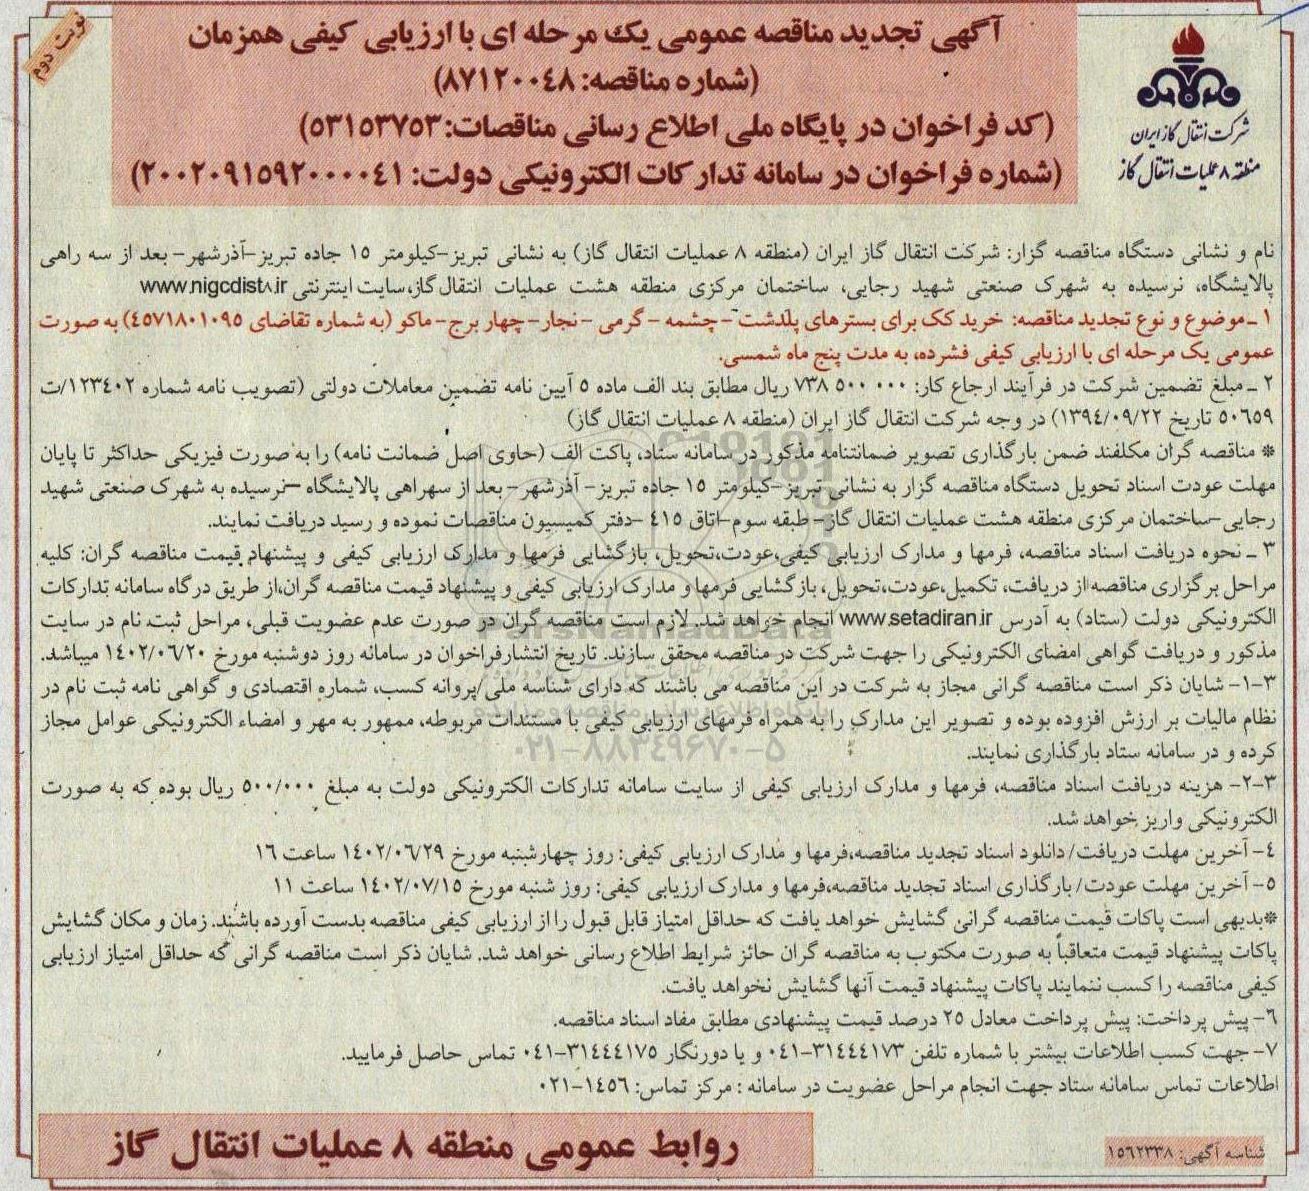 نوبت دوم
آگهی تجدید مناقصه عمومی یک مرحله ای با ارزیابی کیفی همزمان
(شماره مناقصه: ۸۷۱۲۰۰۴۸)
(کد فراخوان در پایگاه ملی اطلاع رسانی مناقصات: ۵۳۱۵۳۷۵۳)
(شماره فراخوان در سامانه تدارکات الکترونیکی دولت: ۲۰۰۲۰۹۱۵۹۲۰۰۰۰۴۱)
شرکت انتقال گاز ایران
منطقه ۸ عملیات انتقال گاز
نام و نشانی دستگاه مناقصه گزار: شرکت انتقال گاز ایران (منطقه ۸ عملیات انتقال گاز) به نشانی تبریز-کیلومتر ۱۵ جاده تبریز-آذرشهر- بعد از سه راهی
پالایشگاه، نرسیده به شهرک صنعتی شهید رجایی، ساختمان مرکزی منطقه هشت عملیات انتقال گاز،سایت اینترنتی www.nigcdist۸.ir
۱ -موضوع و نوع تجدید مناقصه: خرید کک برای بسترهای پلدشت - چشمه - گرمی - نجار- چهار برج- ماکو (به شماره تقاضای ۴۵۷۱۸۰۱۰۹۵) به صورت
عمومی یک مرحله ای با ارزیابی کیفی فشرده، به مدت پنج ماه شمسی.
۲ - مبلغ تضمین شرکت در فرآیند ارجاع کار: ۷۳۸ ۵۰۰ ۰۰۰ ریال مطابق بند الف ماده ۵ آیین نامه تضمین معاملات دولتی (تصویب نامه شماره ۱۲۳۴۰۲/ت
۵۰۶۵۹ تاریخ ۱۳۹۴/۰۹/۲۲) در وجه شرکت انتقال گاز ایران (منطقه ۸ عملیات انتقال گاز)
* مناقصه گران مکلفند ضمن بارگذاری تصویر ضمانتنامه مذکور در سامانه ستاد، پاکت الف (حاوی اصل ضمانت نامه) را به صورت فیزیکی حداکثر تا پایان
مهلت عودت اسناد تحویل دستگاه مناقصه گزار به نشانی تبریز-کیلومتر ۱۵ جاده تبریز- آذرشهر- بعد از سهراهی پالایشگاه –نرسیده به شهرک صنعتی شهید
رجایی-ساختمان مرکزی منطقه هشت عملیات انتقال گاز- طبقه سوم-اتاق ۴۱۵ -دفتر کمیسیون مناقصات نموده و رسید دریافت نمایند.
۳ - نحوه دریافت اسناد مناقصه، فرمها و مدارک ارزیابی کیفی،عودت،تحویل، بازگشایی فرمها و مدارک ارزیابی کیفی و پیشنهاد قیمت مناقصه گران: کلیه
مراحل برگزاری مناقصه از دریافت، تکمیل،عودت،تحویل، بازگشایی فرمها و مدارک ارزیابی کیفی و پیشنهاد قیمت مناقصه گران،از طریق درگاه سامانه تدارکات
الکترونیکی دولت (ستاد) به آدرس www.setadiran.ir انجام خواهد شد. لازم است مناقصه گران در صورت عدم عضویت قبلی، مراحل ثبت نام در سایت
مذکور و دریافت گواهی امضای الکترونیکی را جهت شرکت در مناقصه محقق سازند. تاریخ انتشارفراخوان در سامانه روز دوشنبه مورخ ۱۴۰۲/۰۶/۲۰ میباشد.
۳-۱- شایان ذکر است مناقصه گرانی مجاز به شرکت در این مناقصه می باشند که دارای شناسه ملی/پروانه کسب، شماره اقتصادی و گواهی نامه ثبت نام در
نظام مالیات بر ارزش افزوده بوده و تصویر این مدارک را به همراه فرمهای ارزیابی کیفی با مستندات مربوطه، ممهور به مهر و امضاء الکترونیکی عوامل مجاز
کرده و در سامانه ستاد بارگذاری نمایند.
۳-۲- هزینه دریافت اسناد مناقصه، فرمها و مدارک ارزیابی کیفی از سایت سامانه تدارکات الکترونیکی دولت به مبلغ ۵۰۰/۰۰۰ ریال بوده که به صورت
الکترونیکی واریز خواهد شد.
۴- آخرین مهلت دریافت/دانلود اسناد تجدید مناقصه،فرمها و مدارک ارزیابی کیفی: روز چهارشنبه مورخ ۱۴۰۲/۰۶/۲۹ ساعت ۱۶
۵- آخرین مهلت عودت/بارگذاری اسناد تجدید مناقصه،فرمها و مدارک ارزیابی کیفی: روز شنبه مورخ ۱۴۰۲/۰۷/۱۵ ساعت ۱۱
*بدیهی است پاکات قیمت مناقصه گرانی گشایش خواهد یافت که حداقل امتیاز قابل قبول را از ارزیابی کیفی مناقصه بدست آورده باشند. زمان و مکان گشایش
پاکات پیشنهاد قیمت متعاقباً به صورت مکتوب به مناقصه گران حائز شرایط اطلاع رسانی خواهد شد. شایان ذکر است مناقصه گرانی که حداقل امتیاز ارزیابی
کیفی مناقصه را کسب ننمایند پاکات پیشنهاد قیمت آنها گشایش نخواهد یافت.
۶- پیش پرداخت: پیش پرداخت معادل ۲۵ درصد قیمت پیشنهادی مطابق مفاد اسناد مناقصه.
۷- جهت کسب اطلاعات بیشتر با شماره تلفن ۳۱۴۴۴۱۷۳-۰۴۱ و یا دورنگار ۳۱۴۴۴۱۷۵-۰۴۱ تماس حاصل فرمایید.
اطلاعات تماس سامانه ستاد جهت انجام مراحل عضویت در سامانه : مرکز تماس: ۱۴۵۶-۰۲۱
شناسه آگهی: ۱۵۶۲۳۳۸
روابط عمومی منطقه ۸ عملیات انتقال گاز
ParsNamadData
پایگاه اطلاع رسانی مناقصه و مزایده
۰۲۱-۸۸۳۴۹۶۷۰-۵